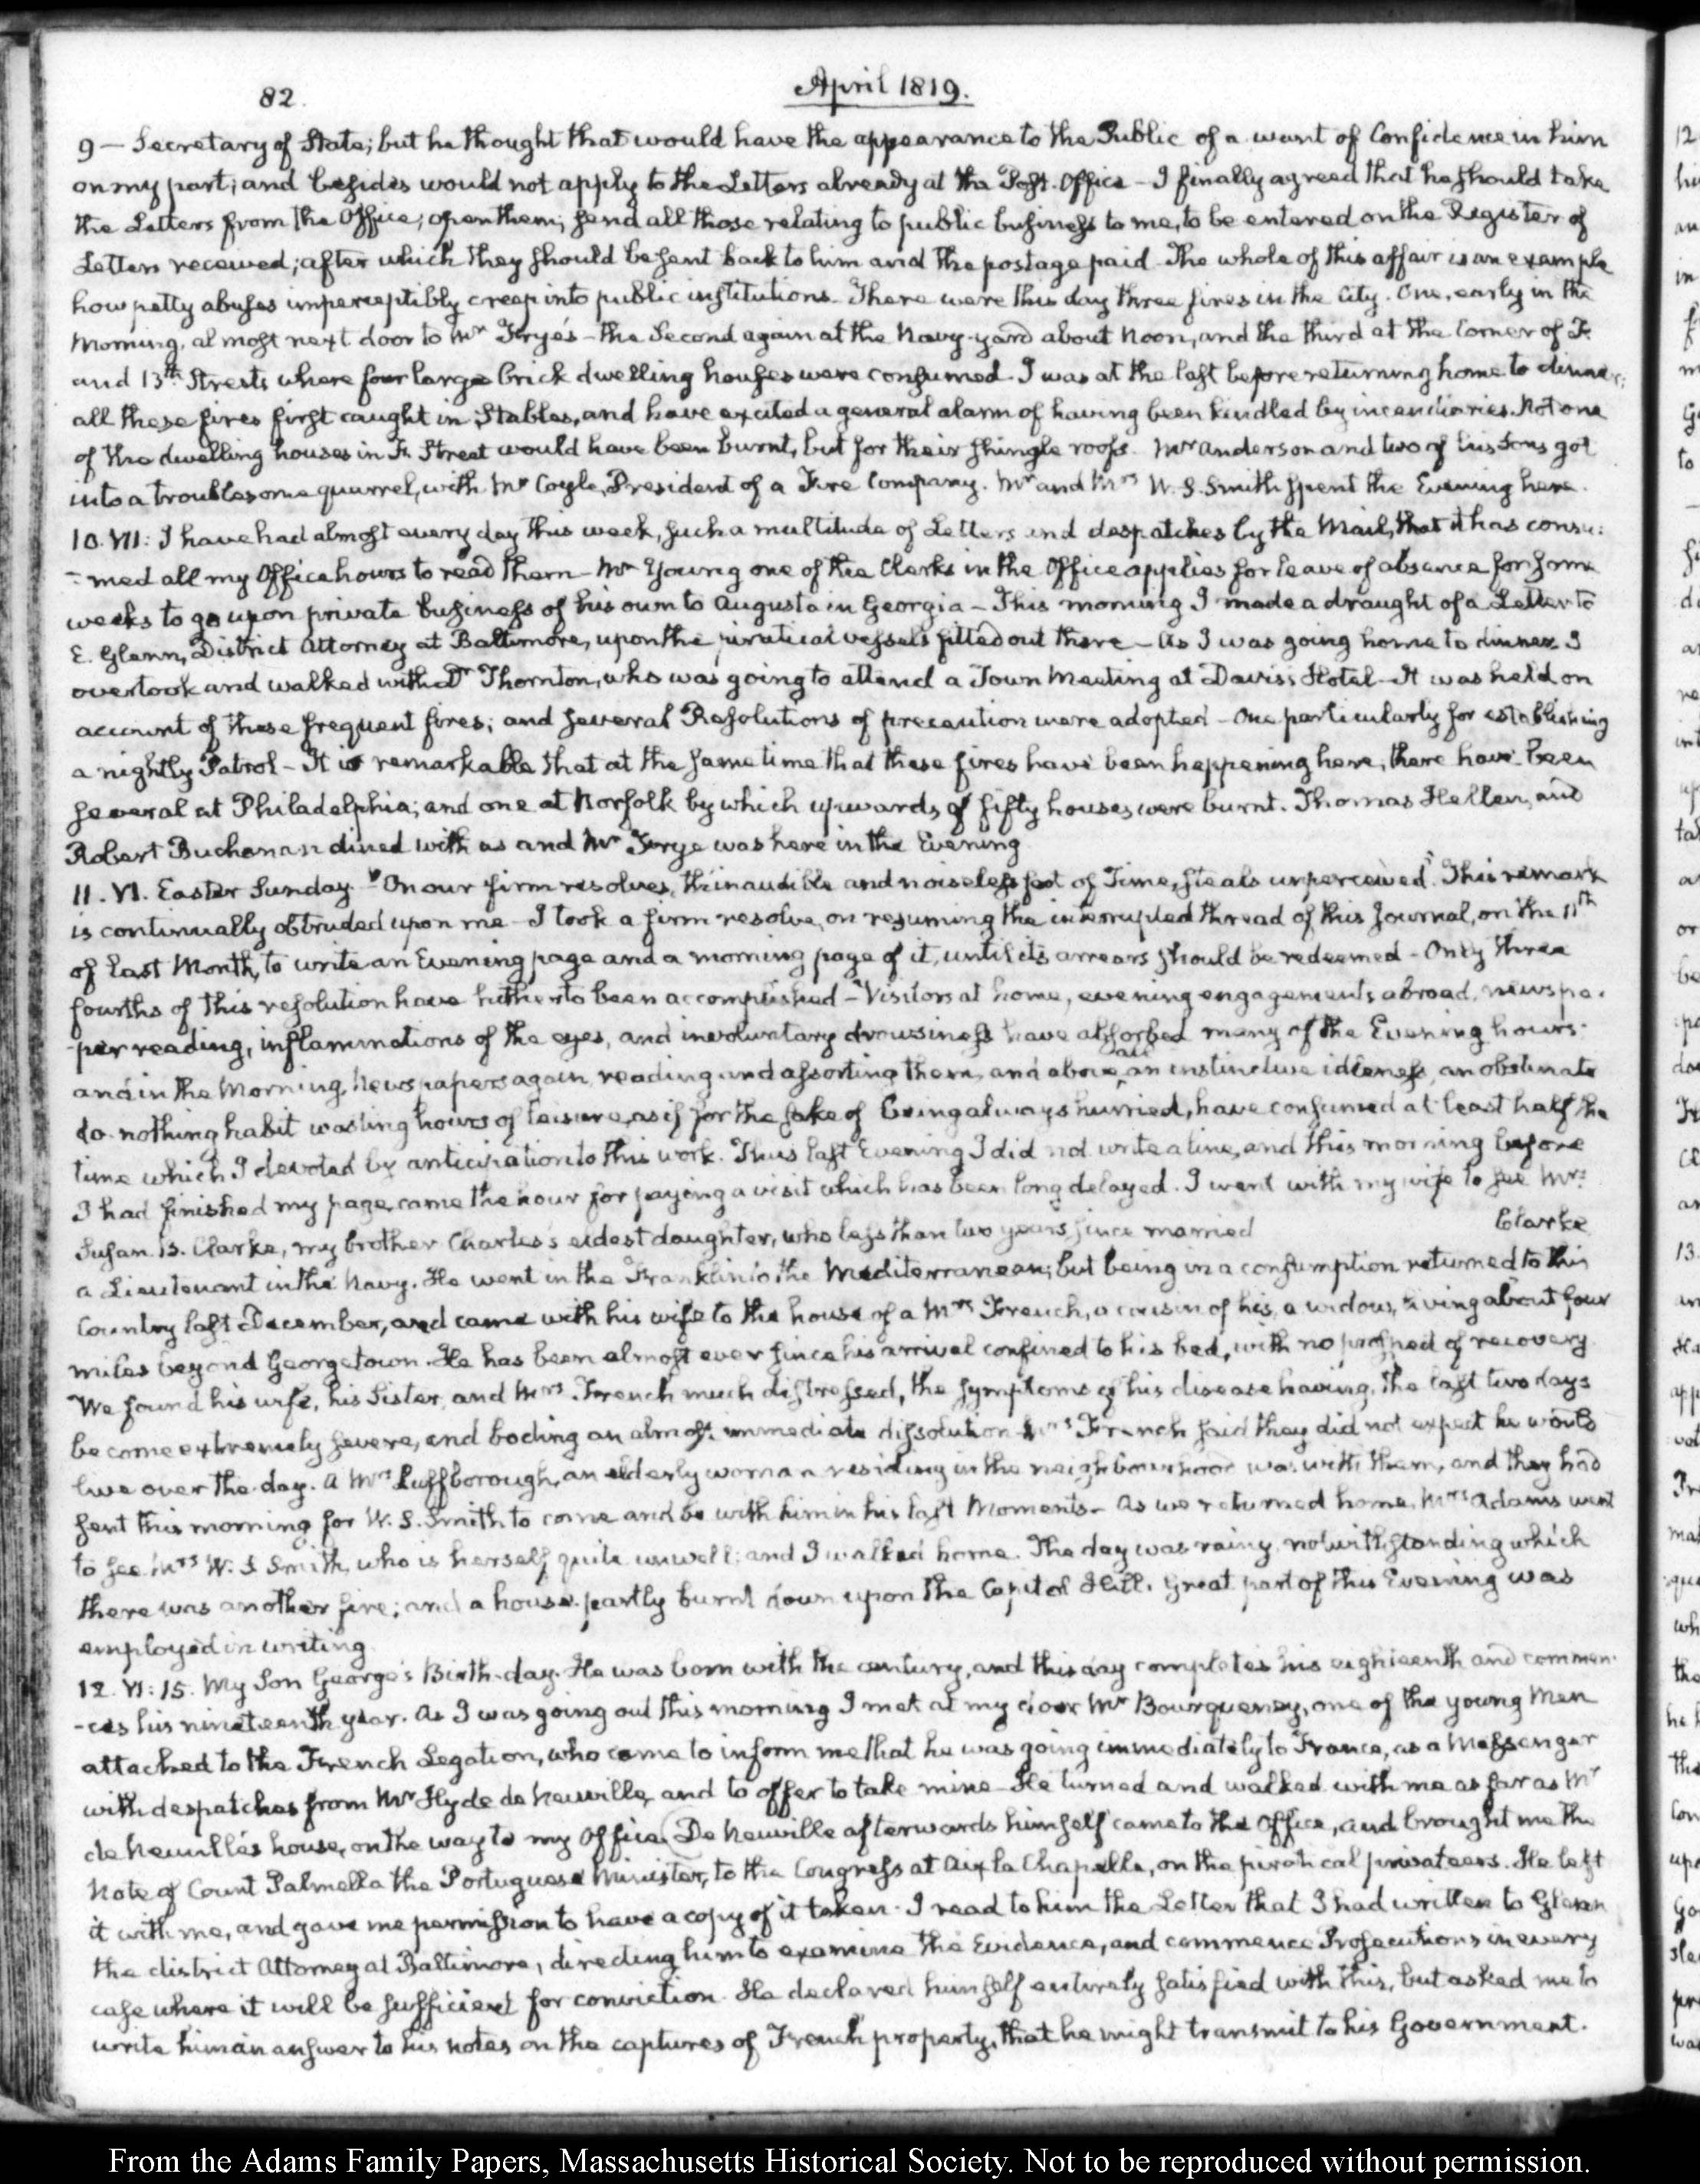 82.
April 1819.
9 — Secretary of State; but he thought that would have the appearance to the Public of a want of Confidence in him
on my part; and besides would not apply to the Letters already at the Post-Office — I finally agreed that he should take
the Letters from the Office; open them; send all those relating to public business to me, to be entered on the Register of
Letters received; after which they should be sent back to him and the postage paid. The whole of this affair is an example
how petty abuses imperceptibly creep into public institutions — There were this day three fires in the City. One, early in the
Morning, almost next door to Mr Frye's — the Second again at the Navy-yard about Noon, and the third at the Corner of F.
and 13th Streets where four large brick dwelling houses were consumed. I was at the last before returning home to dinner;
all these fires first caught in Stables, and have excited a general alarm of having been kindled by incendiaries. Not one
of the dwelling houses in F. Street would have been burnt, but for their shingle roofs. Mr Anderson and two of his Sons got
into a troublesome quarrel, with Mr Coyle, President of a Fire Company. Mr and Mrs W. S. Smith spent the Evening here.
10. VII: I have had almost every day this week, such a multitude of Letters and despatches by the Mail, that it has consu:
- med all my Office hours to read them — Mr Young one of the Clerks in the Office applies for leave of absence for some
weeks to go upon private business of his own to Augusta in Georgia — This morning I made a draught of a Letter to
E. Glenn, District Attorney at Baltimore, upon the piratical vessels fitted out there — As I was going home to dinner I
overtook and walked with Dr Thornton, who was going to attend a Town Meeting at Davis's Hotel — It was held on
account of these frequent fires; and several Resolutions of precaution were adopted — One particularly for establishing
a nightly Patrol — It is remarkable that at the same time that these fires have been happening here, there have been
several at Philadelphia; and one at Norfolk by which upwards of fifty houses were burnt. Thomas Hellen, and
Robert Buchanan dined with us and Mr Frye was here in the Evening
11. VI. Easter Sunday. "On our firm resolves, th'inaudible and noiseless foot of Time, steals unperceived." This remark
is continually obtruded upon me — I took a firm resolve, on resuming the interrupted thread of this Journal, on the 11th
of last Month, to write an Evening page and a morning page of it, until its arrears should be redeemed — Only three
fourths of this resolution have hitherto been accomplished — Visitors at home, evening engagements abroad, newspa-
-per reading, inflammations of the eyes, and involuntary drowsiness have absorbed many of the Evening hours:
and in the Morning, Newspapers again, reading and assorting them, and above all an instinctive idleness, an obstinate
do-nothing habit wasting hours of leisure, as if for the sake of being always hurried, have consumed at least half the
time which I devoted by anticipation to this work. Thus last Evening I did not write a line, and this morning before
I had finished my page, came the hour for paying a visit which has been long delayed. I went with my wife to see Mrs
Susan B. Clarke, my brother Charles's eldest daughter, who less than two years since married Clarke
a Lieutenant in the Navy. He went in the Franklin to the Mediterranean; but being in a consumption returned to this
Country last December, and came with his wife to the house of a Mrs French, a cousin of his, a widow, living about four
miles beyond Georgetown. He has been almost ever since his arrival confined to his bed, with no prospect of recovery.
We found his wife, his Sister, and Mrs French much distressed, the symptoms of his disease having, the last two days
become extremely severe, and boding an almost immediate dissolution — Mrs French said they did not expect he would
live over the day. A Mrs Luffborough, an elderly woman residing in the neighbourhood was with them, and they had
sent this morning for W. S. Smith to come and be with him in his last Moments — As we returned home, Mrs Adams went
to see Mrs W. S Smith, who is herself quite unwell; and I walked home. The day was rainy, notwithstanding which
there was another fire; and a house partly burnt down upon the Capitol Hill. Great part of this Evening was
employed in writing
12. VI: 15. My Son George's Birth-day. He was born with the century, and this day completes his eighteenth and commen-
-ces his nineteenth year. As I was going out this morning I met at my door Mr Bourqueney, one of the young Men
attached to the French Legation, who came to inform me that he was going immediately to France, as a Messenger
with despatches from Mr Hyde de Neuville, and to offer to take mine — He turned and walked with me as far as Mr
de Neuville's house, on the way to my Office. De Neuville afterwards himself came to the Office, and brought me the
Note of Count Palmella the Portuguese Minister, to the Congress at Aix la Chapelle, on the piratical privateers. He left
it with me, and gave me permission to have a copy of it taken. I read to him the Letter that I had written to Glenn
the district Attorney at Baltimore, directing him to examine the Evidence, and commence Prosecutions in every
case where it will be sufficient for conviction. He declared himself entirely satisfied with this, but asked me to
write him an answer to his notes on the captures of French property, that he might transmit to his Government.
From the Adams Family Papers, Massachusetts Historical Society. Not to be reproduced without permission.